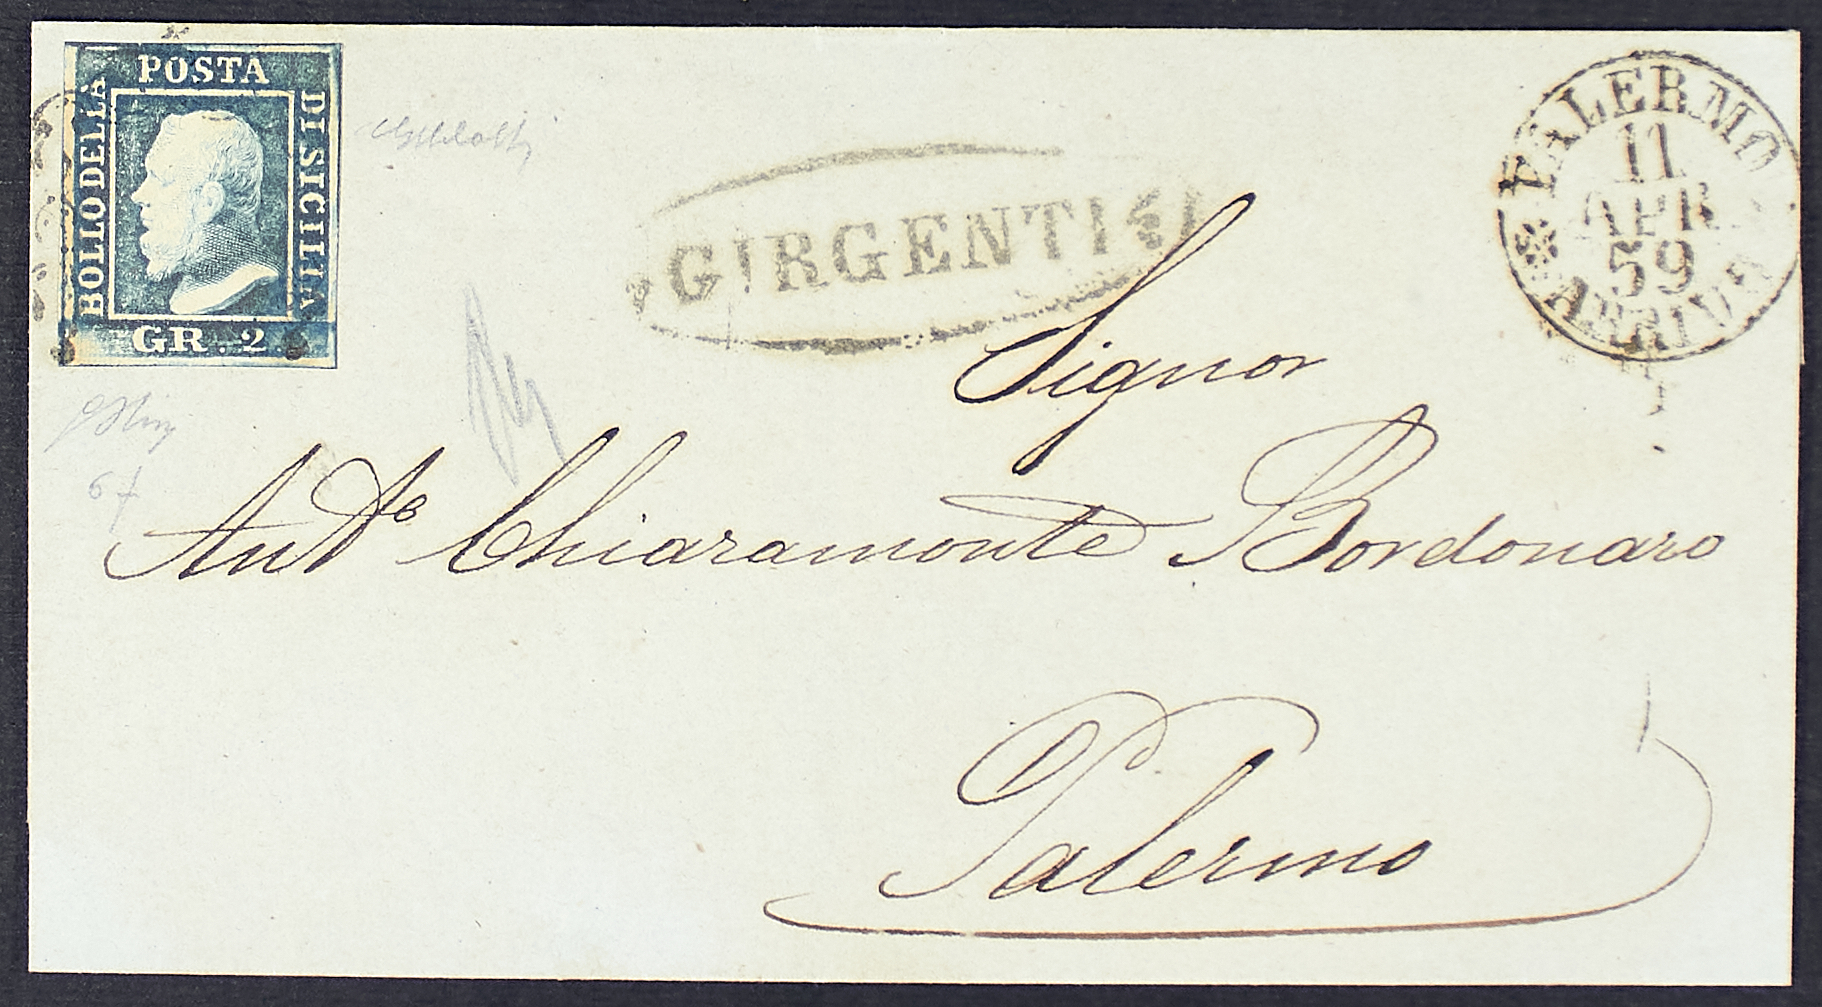 POSTA
BOLLO DELLA
DI SICILIA
GR. 2
GIRGENTI
PALERMO
11
APR
59
ARRIVO
Signor
Ant.º Chiaramonte Bordonaro
Palermo